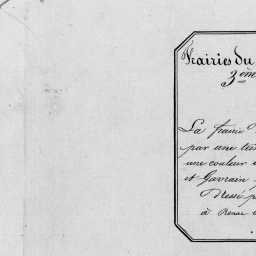 Prairies du
3eme
La prairie
par une tein
une couleur
et Gavrain
Dressé p
à Renac